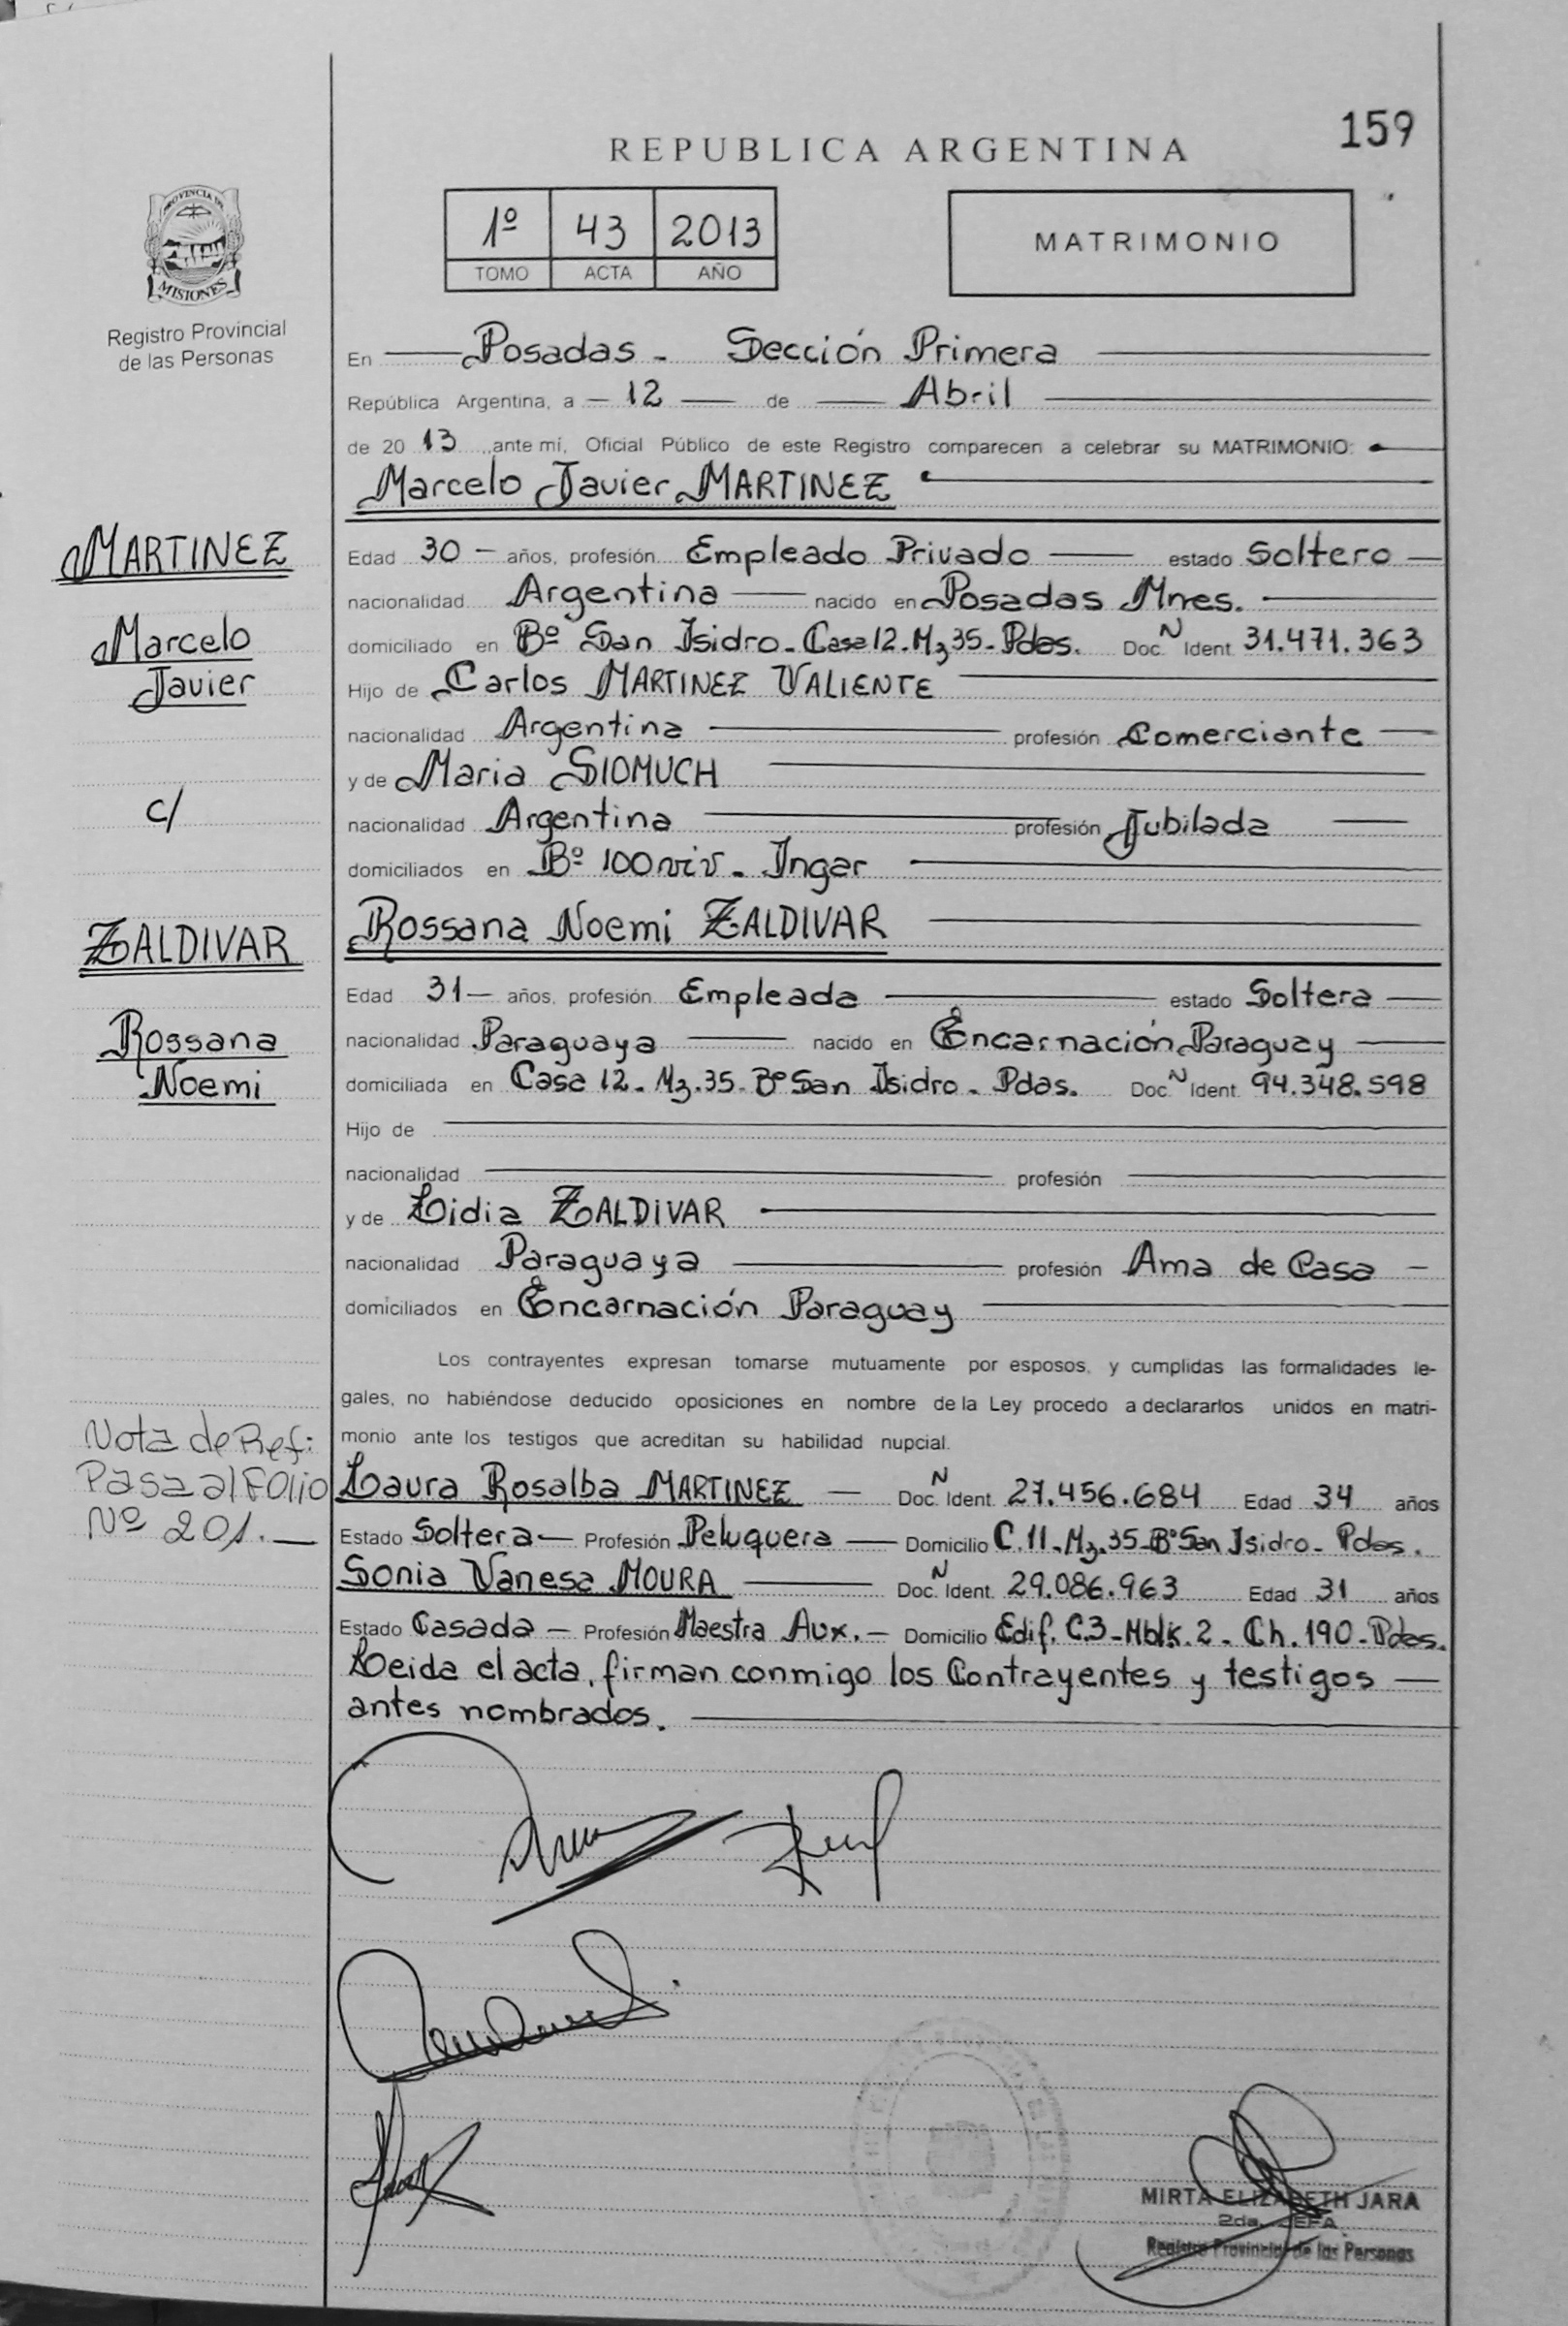 159
REPUBLICA ARGENTINA
PROVINCIA DE
MISIONES
Registro Provincial
de las Personas
1º 43 2013
TOMO ACTA AÑO
MATRIMONIO
En Posadas - Sección Primera
República Argentina, a - 12 - de Abril
de 20 13 ,ante mí, Oficial Público de este Registro comparecen a celebrar su MATRIMONIO:
Marcelo Javier MARTINEZ
MARTINEZ
Marcelo
Javier
c/
ZALDIVAR
Rossana
Noemi
Edad 30 - años, profesión Empleado Privado estado Soltero
nacionalidad Argentina nacido en Posadas Mnes.
domiciliado en Bº San Isidro - Casa 12. Mz 35 - Pdas. Doc. N Ident. 31.471.363
Hijo de Carlos MARTINEZ VALIENTE
nacionalidad Argentina profesión Comerciante
y de Maria SIOMUCH
nacionalidad Argentina profesión Jubilada
domiciliados en Bº 100 viv. - Ingar
Rossana Noemi ZALDIVAR
Edad 31 - años, profesión Empleada estado Soltera
nacionalidad Paraguaya nacido en Encarnación Paraguay
domiciliada en Casa 12 - Mz. 35 - Bº San Isidro - Pdas. Doc. N Ident. 94.348.598
Hijo de
nacionalidad profesión
y de Lidia ZALDIVAR
nacionalidad Paraguaya profesión Ama de Casa
domiciliados en Encarnación Paraguay
Los contrayentes expresan tomarse mutuamente por esposos, y cumplidas las formalidades le-
gales, no habiéndose deducido oposiciones en nombre de la Ley procedo a declararlos unidos en matri-
monio ante los testigos que acreditan su habilidad nupcial.
Nota de Ref:
Pasa al Folio
Nº 201.
Laura Rosalba MARTINEZ Doc. N Ident. 27.456.684 Edad 34 años
Estado Soltera Profesión Peluquera Domicilio C. 11 - Mz. 35 - Bº San Isidro - Pdas.
Sonia Vanesa MOURA Doc. N Ident. 29.086.963 Edad 31 años
Estado Casada Profesión Maestra Aux. Domicilio Edif. C.3 - Mblk. 2 - Ch. 190 - Pdas.
Leida el acta, firman conmigo los Contrayentes y testigos
antes nombrados.
MIRTA ELIZABETH JARA
2da. JEFA
Registro Provincial de las Personas